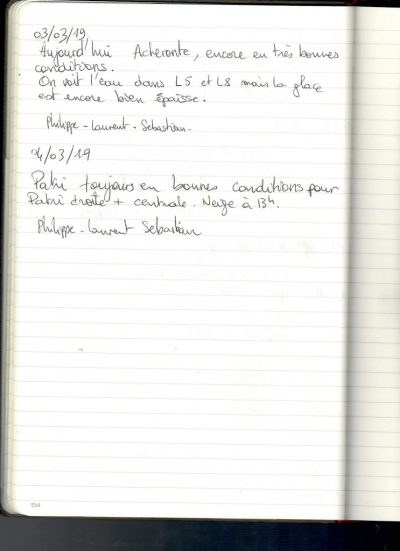 03/03/19
Aujourd'hui Acheronte, encore en très bonnes
conditions.
On voit l'eau dans L5 et L8 mais la glace
est encore bien épaisse.
Philippe - Laurent - Sebastian -
04/03/19
Patri toujours en bonnes conditions pour
Patri droite + centrale. Neige à 13h.
Philippe - Laurent Sebastian